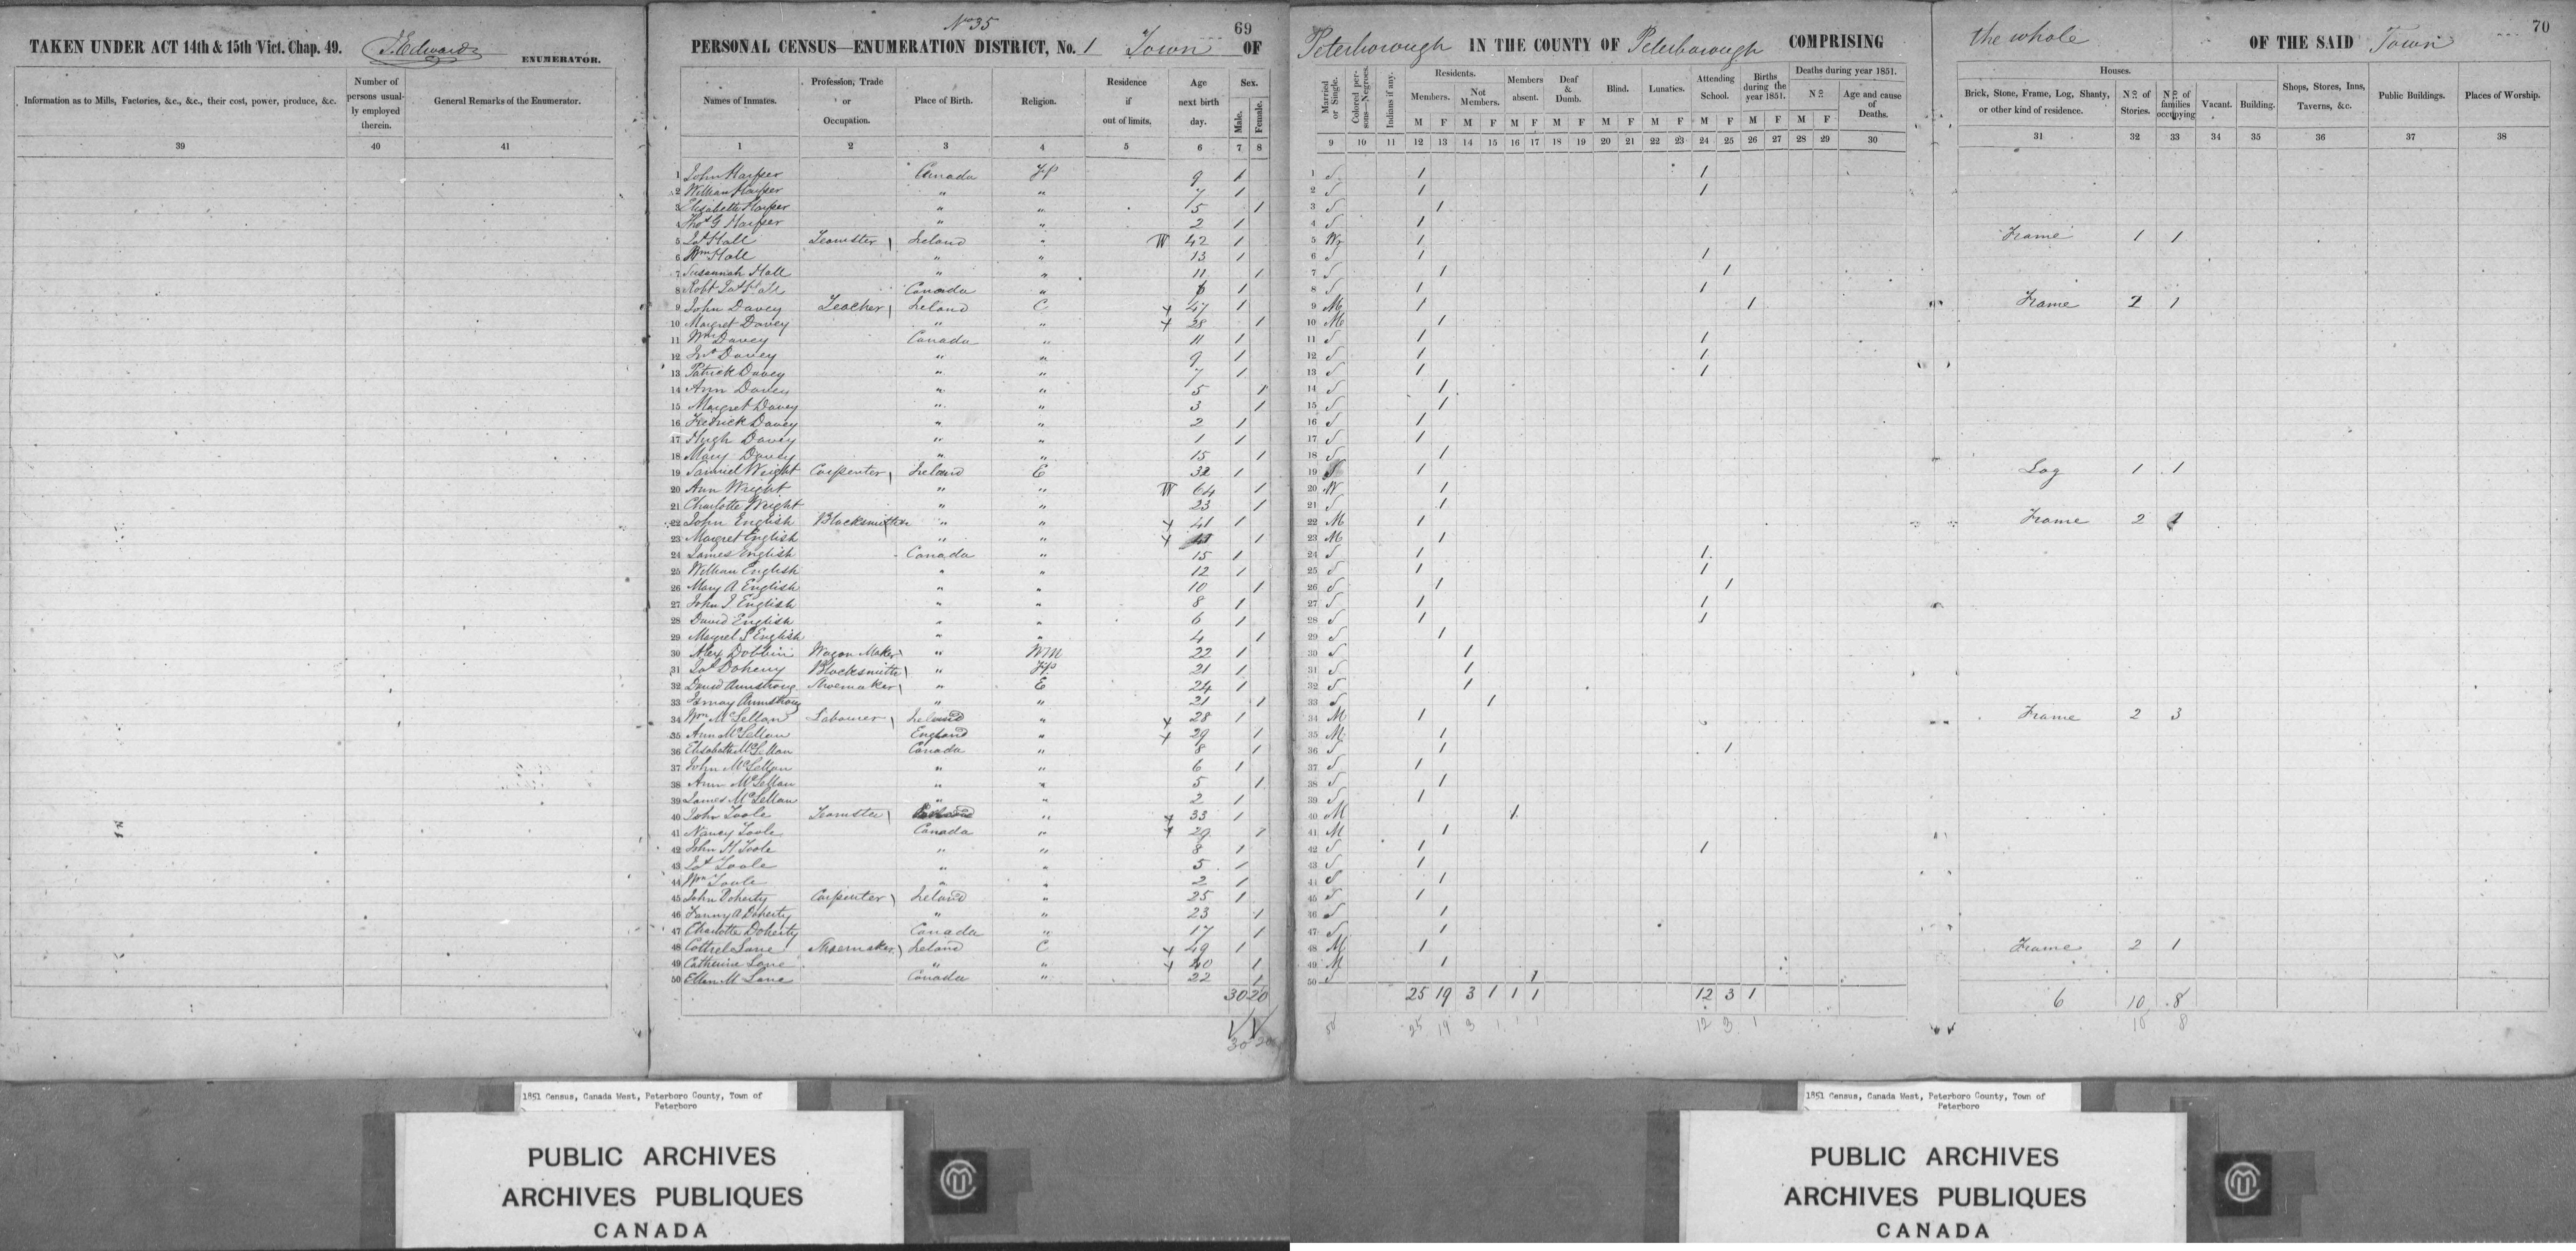 TAKEN UNDER ACT 14th & 15th Vict. Chap. 49. J. Edwards ENUMERATOR.
Information as to Mills, Factories, &c., &c., their cost, power, produce, &c. Number of persons usually employed therein. General Remarks of the Enumerator.
39 40 41
No 35
69
PERSONAL CENSUS—ENUMERATION DISTRICT, No. 1 Town OF
Names of Inmates. Profession, Trade or Occupation. Place of Birth. Religion. Residence if out of limits. Age next birth day. Sex. Male. Female.
1 2 3 4 5 6 7 8
1 John Harper Canada FP 9 1
2 William Harper " " 7 1
3 Elizabeth Harper " " 5 1
4 Thos G Harper " " 2 1
5 Jas Hall Teamster Ireland " W 42 1
6 Wm Hall " " 13 1
7 Susannah Hall " " 11 1
8 Robt Jas Hall Canada " 6 1
9 John Davey Teacher Ireland C + 47 1
10 Margret Davey " " + 28 1
11 Wm Davey Canada " 11 1
12 Jno Davey " " 9 1
13 Patrick Davey " " 7 1
14 Ann Davey " " 5 1
15 Margret Davey " " 3 1
16 Fredrick Davey " " 2 1
17 Hugh Davey " " 1 1
18 Mary Davey " " 15 1
19 Samuel Wright Carpenter Ireland E 32 1
20 Ann Wright " " W 64 1
21 Charlotte Wright " " 23 1
22 John English Blacksmith " " + 41 1
23 Margret English " " + 1
24 James English Canada " 15 1
25 William English " " 12 1
26 Mary A English " " 10 1
27 John J English " " 8 1
28 David English " " 6 1
29 Margret S English " " 4 1
30 Alex Dobbin Wagon Maker " WM 22 1
31 Jas Doheny Blacksmith " FP 21 1
32 David Armstrong Shoemaker " E 24 1
33 Armstrong " " 21 1
34 Wm McLellan Labourer Ireland " + 28 1
35 Ann McLellan England " + 29 1
36 Elizabeth McLellan Canada " 8 1
37 John McLellan " " 6 1
38 Ann McLellan " " 5 1
39 James McLellan " " 2 1
40 John Toole Teamster " + 33 1
41 Nancy Toole Canada " + 29 1
42 John H Toole " " 8 1
43 Jas Toole " " 5 1
44 Wm Toole " " 2 1
45 John Doherty Carpenter Ireland " 25 1
46 Fanny A Doherty " " 23 1
47 Charlotte Doherty Canada " 17 1
48 Lane Shoemaker Ireland C + 49 1
49 Catherine Lane " " + 40 1
50 Ellen M Lane Canada " 22 1
30 20
30 20
Peterborough IN THE COUNTY OF Peterborough COMPRISING
Married or Single. Colored persons—Negroes. Indians if any. Residents. Members. Not Members. Members absent. Deaf & Dumb. Blind. Lunatics. Attending School. Births during the year 1851. Deaths during year 1851. No. Age and cause of Deaths.
M F M F M F M F M F M F M F M F M F
9 10 11 12 13 14 15 16 17 18 19 20 21 22 23 24 25 26 27 28 29 30
1 S 1 1
2 S 1 1
3 S 1
4 S 1
5 Wr 1
6 S 1 1
7 S 1 1
8 S 1 1
9 M 1 1
10 M 1
11 S 1 1
12 S 1 1
13 S 1 1
14 S 1
15 S 1
16 S 1
17 S 1
18 S 1
19 S 1
20 W 1
21 S 1
22 M 1
23 M 1
24 S 1 1
25 S 1 1
26 S 1 1
27 S 1 1
28 S 1 1
29 S 1
30 S 1
31 S 1
32 S 1
33 S 1
34 M 1
35 M 1
36 S 1 1
37 S 1
38 S 1
39 S 1
40 M 1
41 M 1
42 S 1 1
43 S 1
44 S 1
45 S 1
46 S 1
47 S 1
48 M 1
49 M 1
50 S 1
25 19 3 1 1 1 12 3 1
50 25 19 3 1 1 1 12 3 1
70
the whole OF THE SAID Town
Houses. Brick, Stone, Frame, Log, Shanty, or other kind of residence. No. of Stories. No. of families occupying Vacant. Building. Shops, Stores, Inns, Taverns, &c. Public Buildings. Places of Worship.
31 32 33 34 35 36 37 38
Frame 1 1
Frame 2 1
Log 1 1
Frame 2 1
Frame 2 3
Frame 2 1
6 10 8
10 8
1851 Census, Canada West, Peterboro County, Town of
Peterboro
PUBLIC ARCHIVES
ARCHIVES PUBLIQUES
CANADA
1851 Census, Canada West, Peterboro County, Town of
Peterboro
PUBLIC ARCHIVES
ARCHIVES PUBLIQUES
CANADA